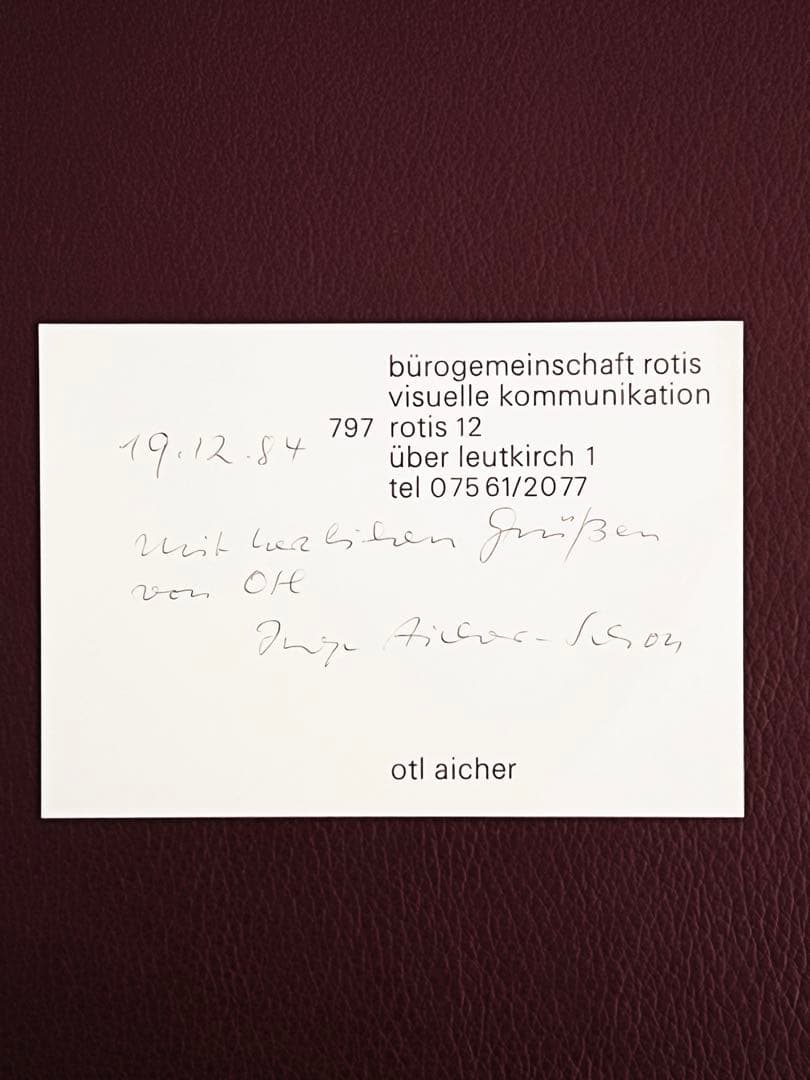 bürogemeinschaft rotis
visuelle kommunikation
797 rotis 12
über leutkirch 1
tel 07561/2077
19.12.84
mit herzlichen Grüßen
von Otl
Inge Aicher-Scholl
otl aicher